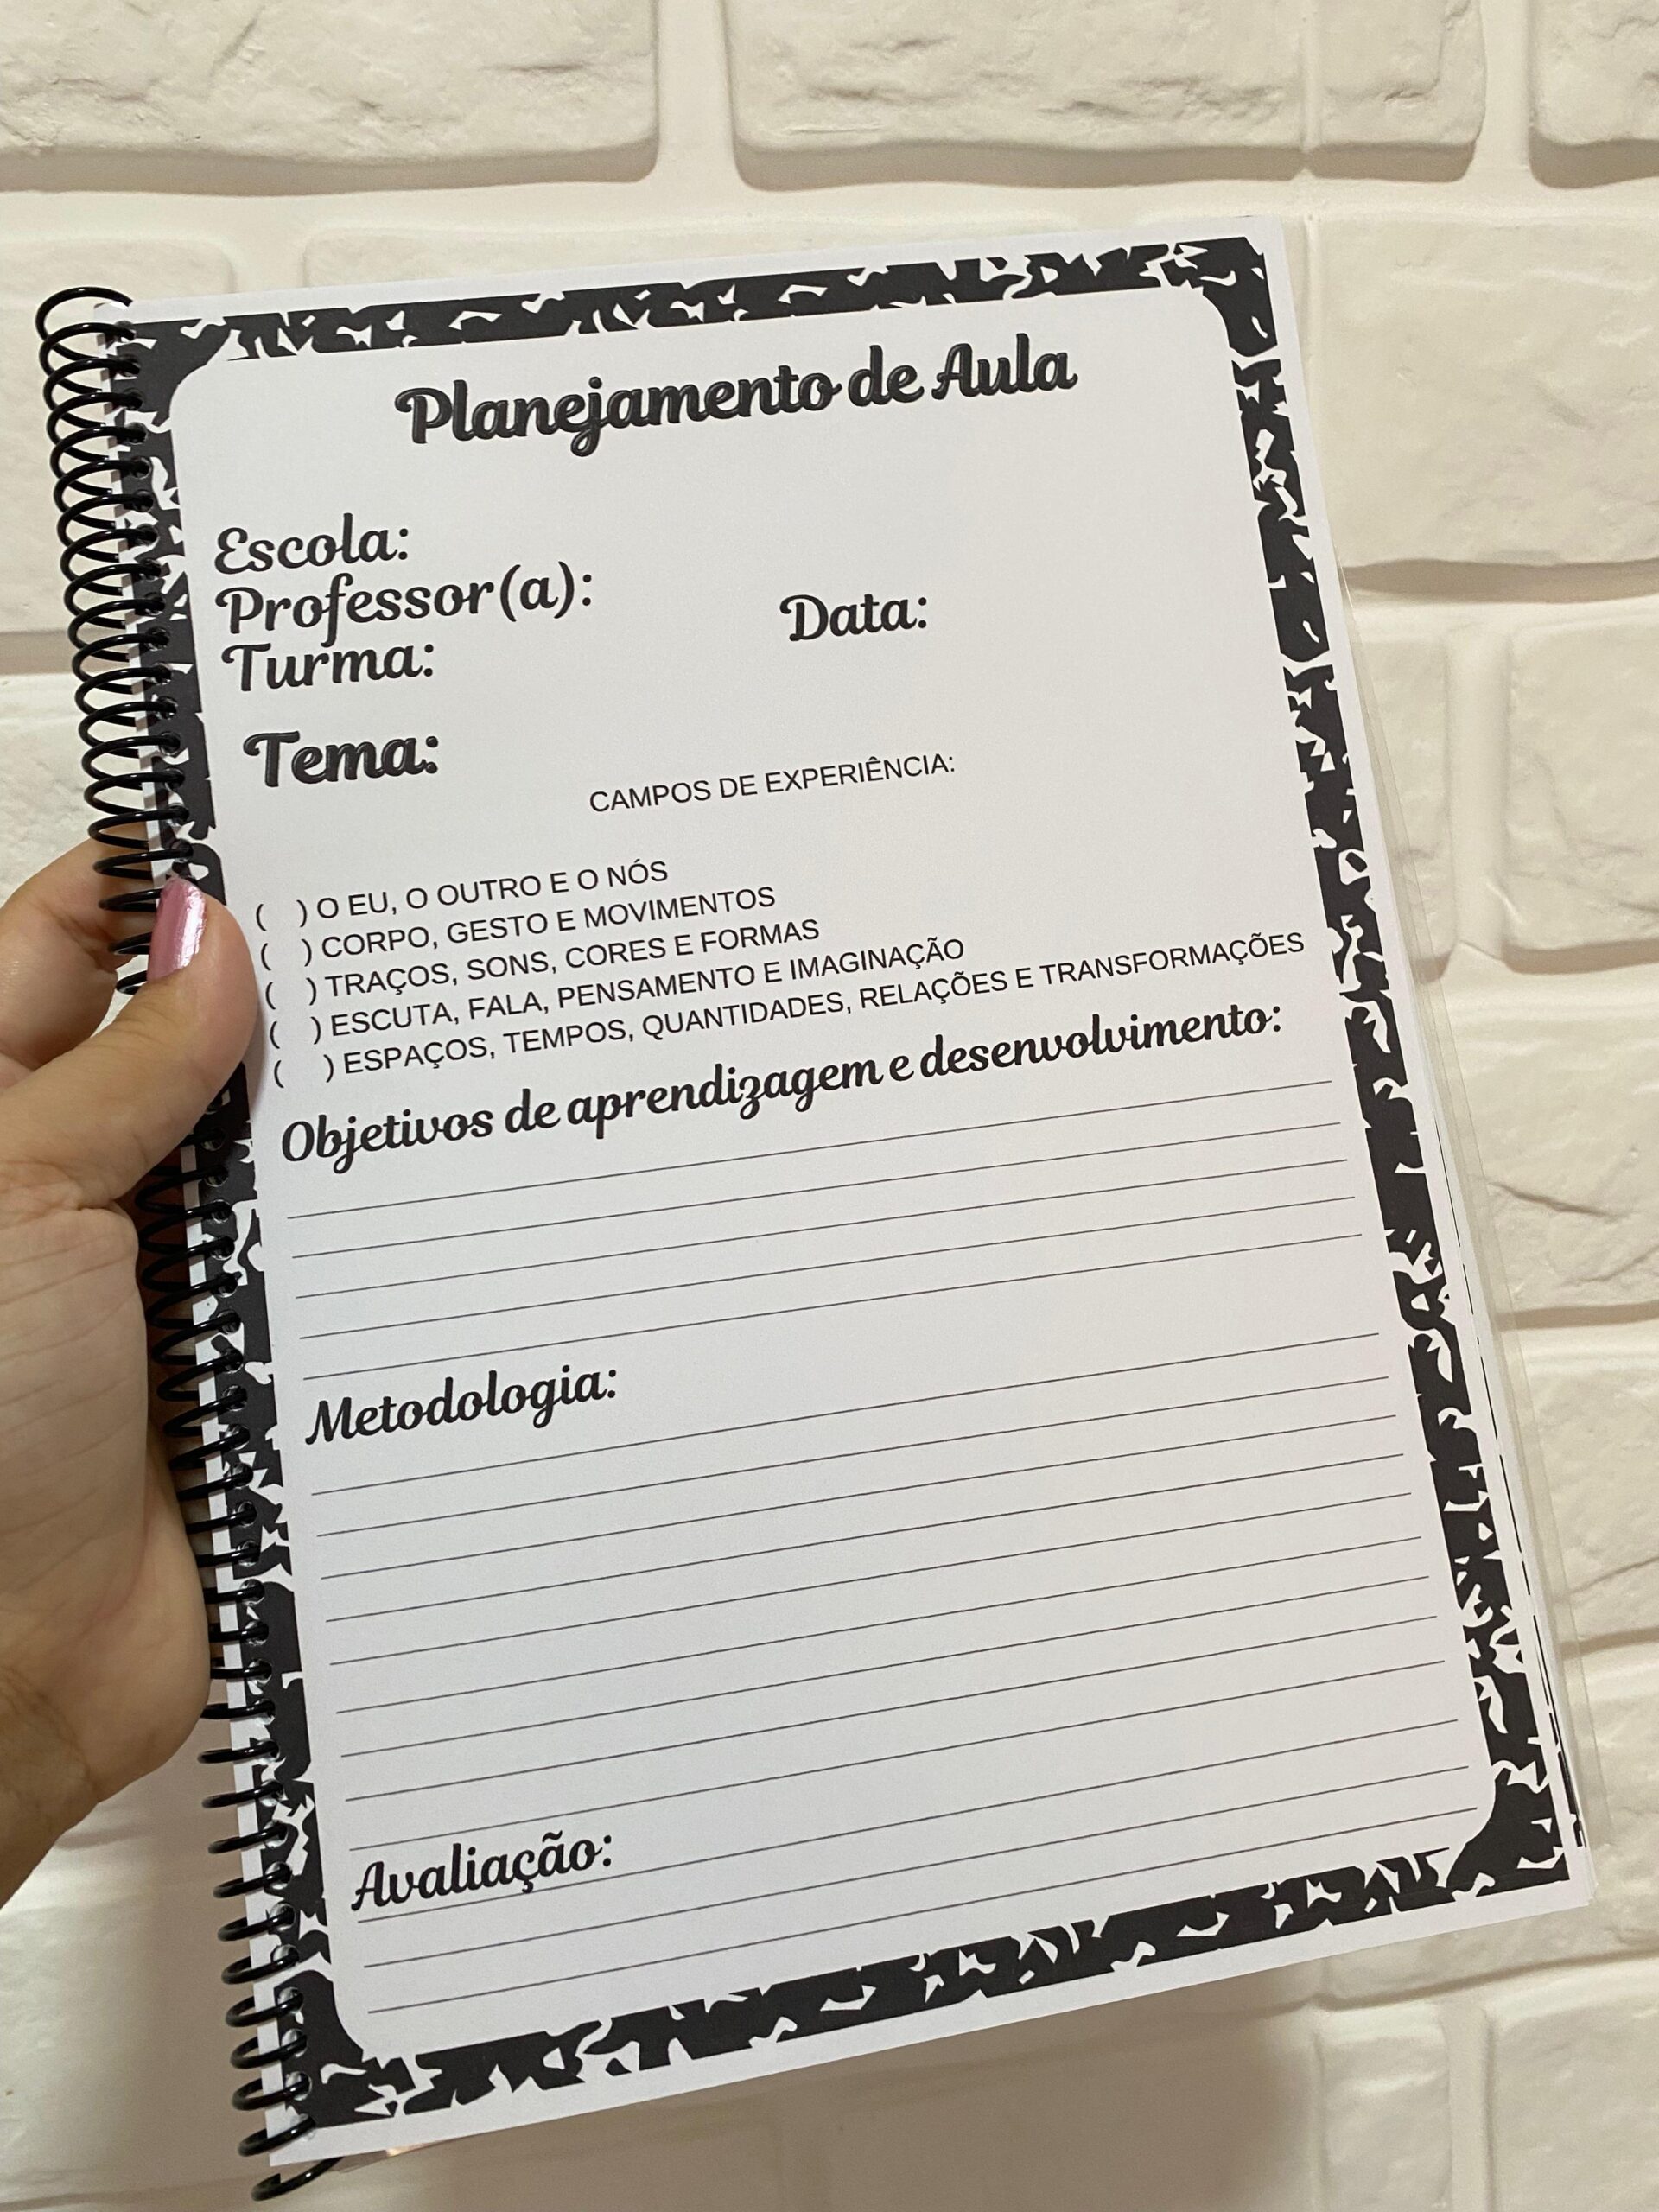 Planejamento de Aula
Escola:
Professor(a):
Data:
Turma:
Tema:
CAMPOS DE EXPERIÊNCIA:
( ) O EU, O OUTRO E O NÓS
( ) CORPO, GESTO E MOVIMENTOS
( ) TRAÇOS, SONS, CORES E FORMAS
( ) ESCUTA, FALA, PENSAMENTO E IMAGINAÇÃO
( ) ESPAÇOS, TEMPOS, QUANTIDADES, RELAÇÕES E TRANSFORMAÇÕES
Objetivos de aprendizagem e desenvolvimento:
Metodologia:
Avaliação: